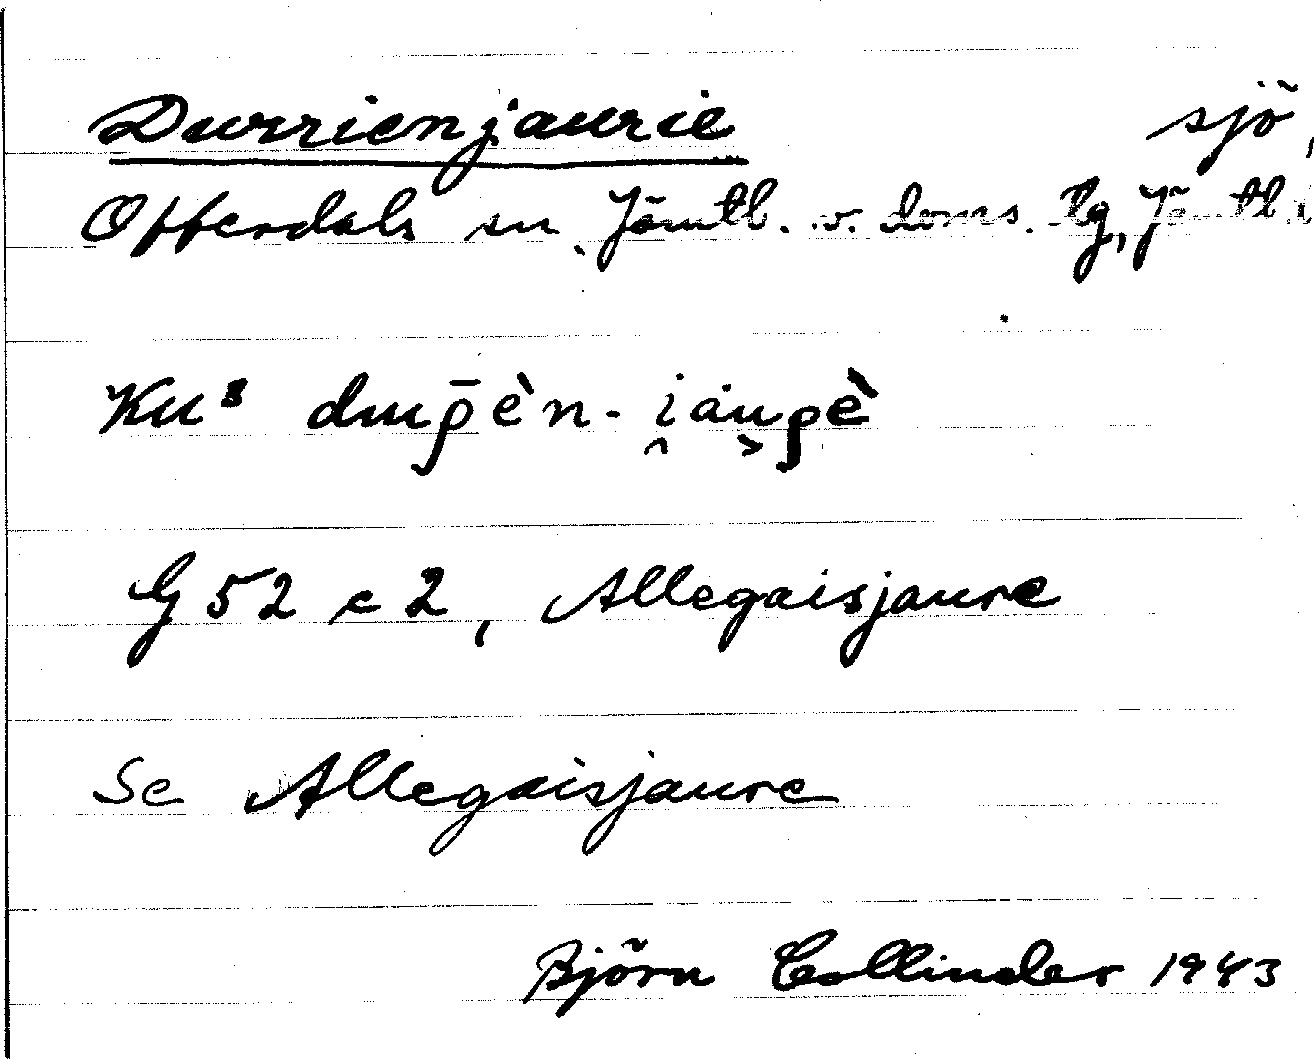 Durrienjaurie sjö,
Offerdals sn. Jämtl. v. doms. tg, Jämtl. l
Ku³ duρ̄èn-i̯áu̯ρè
G 52 c 2, Allegaisjaure
Se Allegaisjaure
Björn Collinder 1943